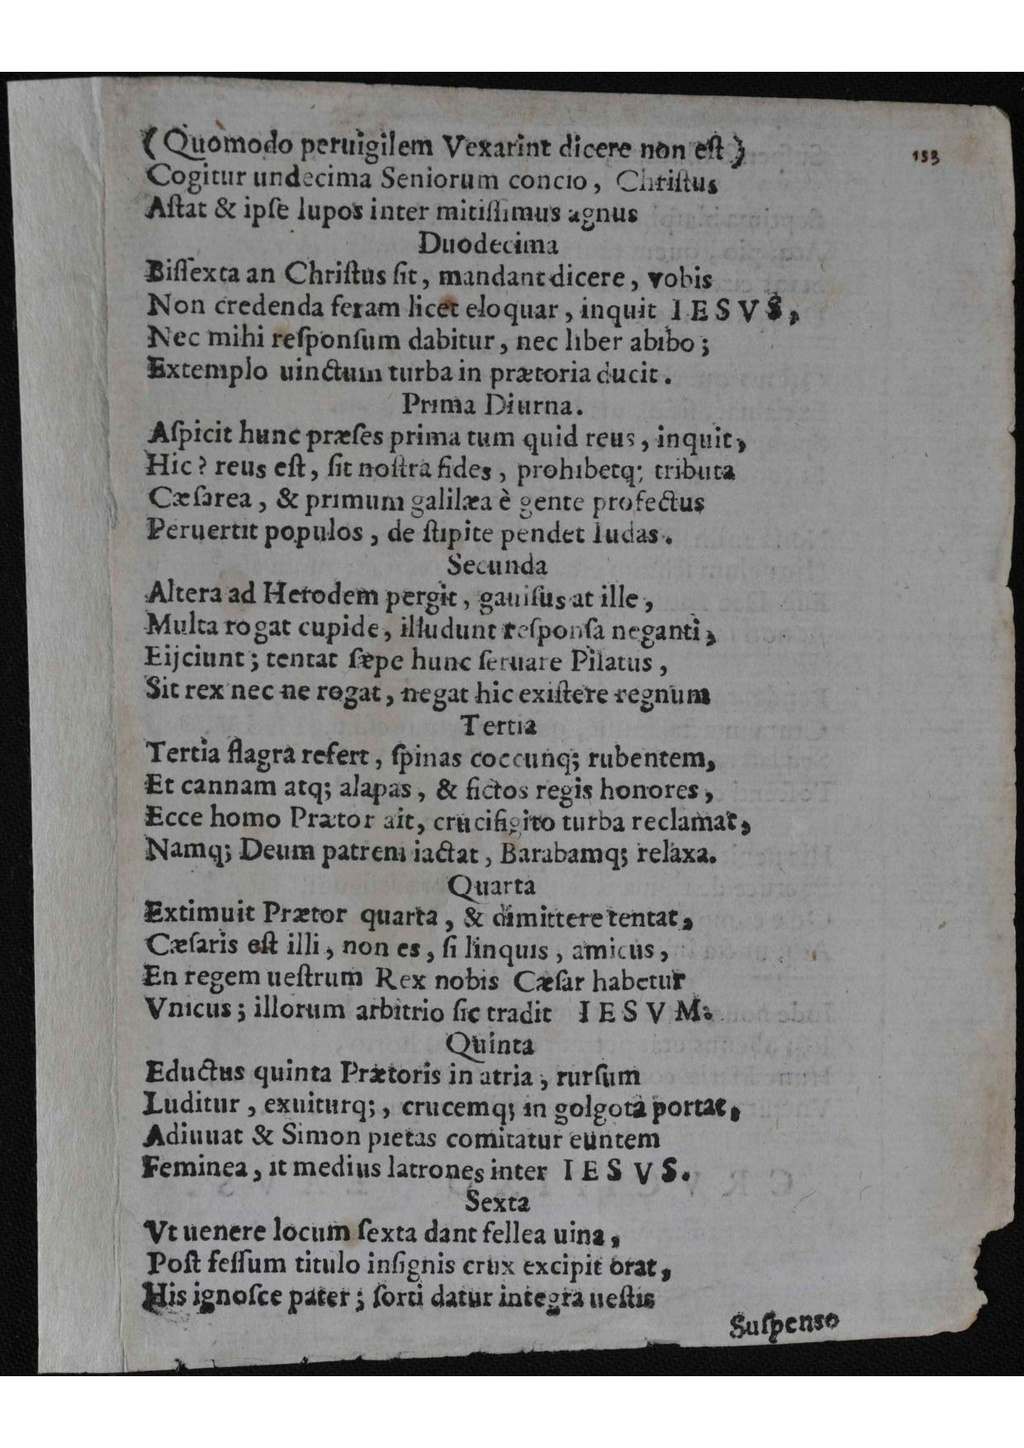 ( Quomodo peruigilem Vexarint dicere non eſt )
153
Cogitur undecima Seniorum concio, Chriſtus
Aſtat & ipſe lupos inter mitiſſimus agnus
Duodecima
Biſſexta an Chriſtus ſit, mandant dicere, vobis
Non credenda feram licet eloquar, inquit IESVS,
Nec mihi reſponſum dabitur, nec liber abibo;
Extemplo uinctum turba in prætoria ducit.
Prima Diurna.
Aſpicit hunc præſes prima tum quid reus, inquit,
Hic? reus eſt, ſit noſtra fides, prohibetq; tributa
Cæſarea, & primum galilæa è gente profectus
Peruertit populos, de ſtipite pendet Iudas.
Secunda
Altera ad Herodem pergit, gauiſus at ille,
Multa rogat cupide, illudunt reſponſa neganti,
Eijciunt; tentat ſæpe hunc ſeruare Pilatus,
Sit rex nec ne rogat, negat hic exiſtere regnum
Tertia
Tertia flagra refert, ſpinas coccunq; rubentem,
Et cannam atq; alapas, & fictos regis honores,
Ecce homo Prætor ait, crucifigito turba reclamat,
Namq; Deum patrem iactat, Barabamq; relaxa.
Quarta
Extimuit Prætor quarta, & dimittere tentat,
Cæſaris eſt illi, non es, ſi linquis, amicus,
En regem ueſtrum Rex nobis Cæſar habetur
Vnicus; illorum arbitrio ſic tradit IESVM.
Quinta
Eductus quinta Prætoris in atria, rurſum
Luditur, exuiturq;, crucemq; in golgota portat,
Adiuuat & Simon pietas comitatur euntem
Feminea, it medius latrones inter IESVS.
Sexta
Vt uenere locum ſexta dant fellea uina,
Poſt feſſum titulo inſignis crux excipit orat,
His ignoſce pater; ſorti datur integra ueſtis
Suſpenso